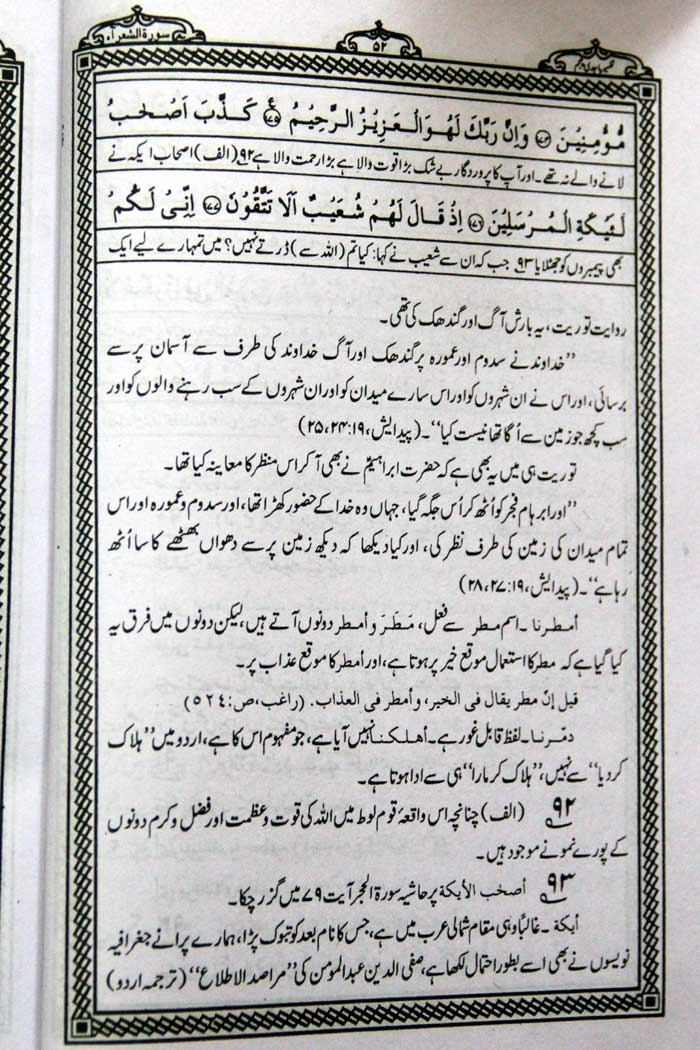 سورۃ الشعرآء
۵۲
مُّؤْمِنِيْنَ ﴿۱۷۴﴾ وَاِنَّ رَبَّكَ لَهُوَ الْعَزِيْزُ الرَّحِيْمُ ﴿۱۷۵﴾ ع كَذَّبَ اَصْحٰبُ
لانے والے نہ تھے۔ اور آپ کا پروردگار بے شک بڑا قوت والا ہے بڑا رحمت والا ہے ۹۲ (الف) اصحاب ایکہ نے
لْئَيْكَةِ الْمُرْسَلِيْنَ ﴿۱۷۶﴾ اِذْ قَالَ لَهُمْ شُعَيْبٌ اَلَا تَتَّقُوْنَ ﴿۱۷۷﴾ اِنِّىْ لَكُمْ
بھی پیمبروں کو جھٹلایا ۹۳ جب کہ ان سے شعیب نے کہا: کیا تم (اللہ سے) ڈرتے نہیں؟ میں تمہارے لیے ایک
روایت توریت، یہ بارش آگ اور گندھک کی تھی۔
”خداوند نے سدوم اور عمورہ پر گندھک اور آگ خداوند کی طرف سے آسمان پر سے
برسائی، اور اس نے ان شہروں کو اور اس سارے میدان کو اور ان شہروں کے سب رہنے والوں کو اور
سب کچھ جو زمین سے اُگا تھا نیست کیا“۔ (پیدایش، ۱۹:۲۴، ۲۵)
توریت ہی میں یہ بھی ہے کہ حضرت ابراہیمؑ نے بھی آکر اس منظر کا معاینہ کیا تھا۔
”اور ابرہام فجر کو اُٹھ کر اُس جگہ گیا، جہاں وہ خدا کے حضور کھڑا تھا، اور سدوم و عمورہ اور اس
تمام میدان کی زمین کی طرف نظر کی، اور کیا دیکھا کہ دیکھ زمین پر سے دھواں بھٹھے کا سا اُٹھ
رہا ہے“۔ (پیدایش، ۱۹:۲۷، ۲۸)
أمطرنا۔ اسم مطر سے فعل، مَطَرَ و أمطر دونوں آتے ہیں، لیکن دونوں میں فرق یہ
کیا گیا ہے کہ مطر کا استعمال موقع خیر پر ہوتا ہے، اور أمطر کا موقع عذاب پر۔
قیل إنّ مطر یقال فی الخیر، وأمطر فی العذاب. (راغب، ص:۵۲٤)
دمّرنا۔ لفظ قابل غور ہے۔ أهلكنا نہیں آیا ہے، جو مفہوم اس کا ہے، اردو میں ”ہلاک
کر دیا“ سے نہیں، ”ہلاک کر مارا“ ہی سے ادا ہوتا ہے۔
۹۲ (الف) چنانچہ اس واقعۂ قوم لوط میں اللہ کی قوت و عظمت اور فضل و کرم دونوں
کے پورے نمونے موجود ہیں۔
۹۳ أصحٰب الأيكة پر حاشیہ سورۃ الحجر آیت ۷۹ میں گزر چکا۔
أیکة۔ غالباً وہی مقام شمالی عرب میں ہے، جس کا نام بعد کو تبوک پڑا، ہمارے پرانے جغرافیہ
نویسوں نے بھی اسے بطور احتمال لکھا ہے، صفی الدین عبدالمؤمن کی ”مراصد الاطلاع“ (ترجمہ اردو)